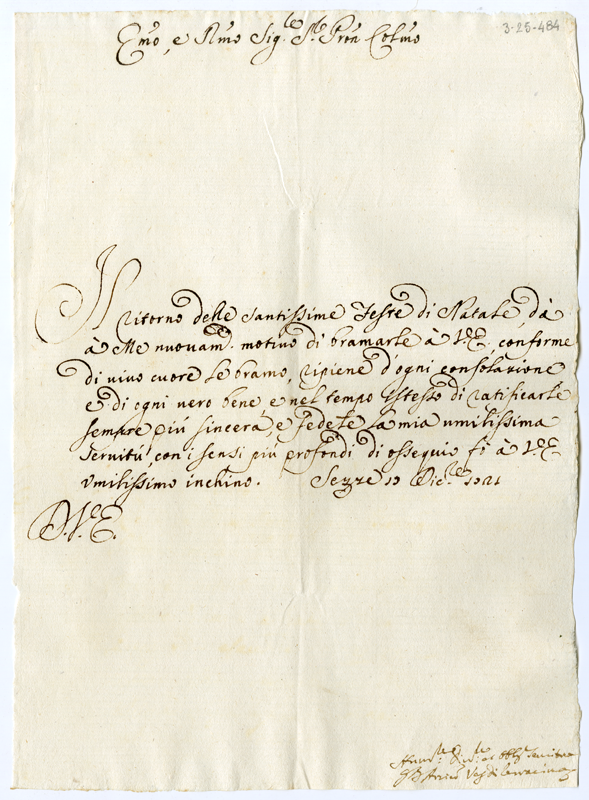 3-25-484
Emo, e Rmo Sig.re Sre Pron Colmo
Il ritorno delle santissime Feste di Natale, dà
à Me nuovam. motivo di bramarle à V.E. conforme
di vivo cuore le bramo, ripiene d'ogni consolazione
e di ogni vero bene, e nel tempo istesso di ratificarle
sempre più sincera, e fedele la mia umilissima
servitù, con i sensi più profondi di ossequio fò à V.E.
umilissimo inchino. Sezze Dic.re
D. V. E.